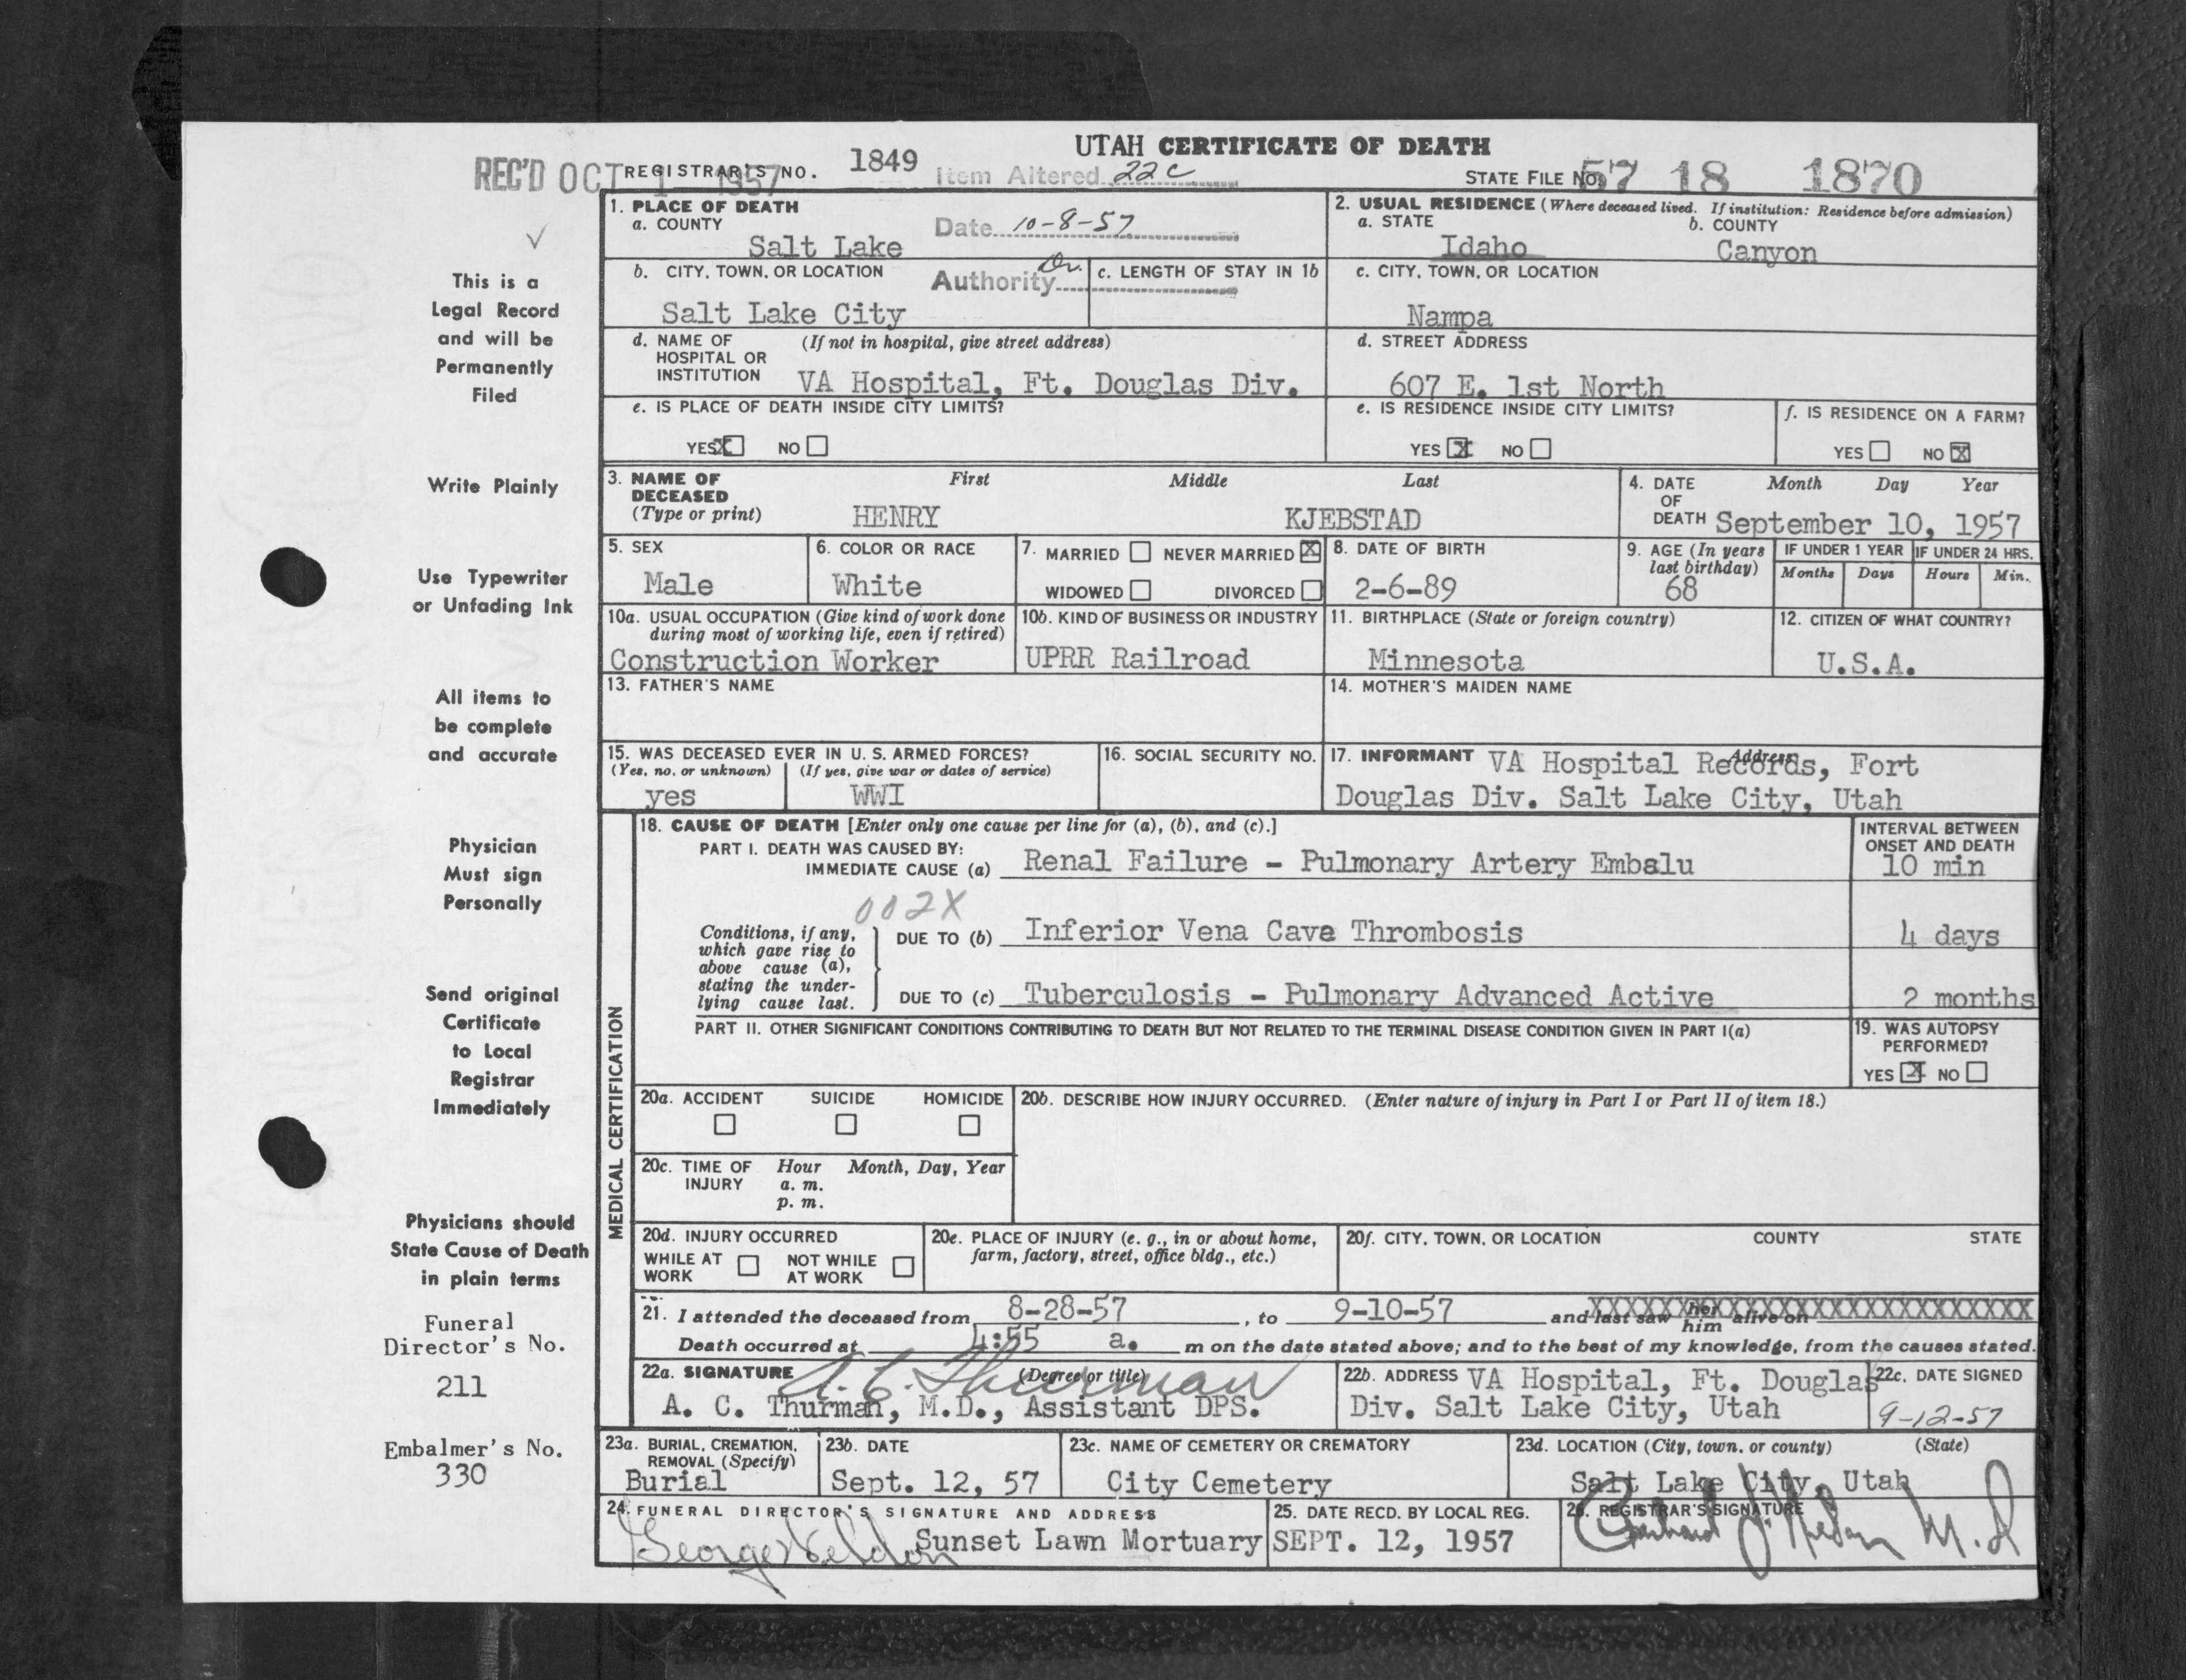 UTAH CERTIFICATE OF DEATH
REC'D OCT 1 1957 REGISTRAR'S NO. 1849 Item Altered 22c STATE FILE NO. 57 18 1870
This is a
Legal Record
and will be
Permanently
Filed
Write Plainly
Use Typewriter
or Unfading Ink
All items to
be complete
and accurate
Physician
Must sign
Personally
Send original
Certificate
to Local
Registrar
Immediately
Physicians should
State Cause of Death
in plain terms
Funeral
Director's No.
211
Embalmer's No.
330
1. PLACE OF DEATH
a. COUNTY
Salt Lake
Date 10-8-57
Authority Dr.
2. USUAL RESIDENCE (Where deceased lived. If institution: Residence before admission)
a. STATE
Idaho
b. COUNTY
Canyon
b. CITY, TOWN, OR LOCATION
Salt Lake City
c. LENGTH OF STAY IN 1b
c. CITY, TOWN, OR LOCATION
Nampa
d. NAME OF (If not in hospital, give street address)
HOSPITAL OR
INSTITUTION VA Hospital, Ft. Douglas Div.
d. STREET ADDRESS
607 E. 1st North
e. IS PLACE OF DEATH INSIDE CITY LIMITS?
YES X NO
e. IS RESIDENCE INSIDE CITY LIMITS?
YES X NO
f. IS RESIDENCE ON A FARM?
YES NO X
3. NAME OF First Middle Last
DECEASED
(Type or print) HENRY KJEBSTAD
4. DATE Month Day Year
OF
DEATH September 10, 1957
5. SEX
Male
6. COLOR OR RACE
White
7. MARRIED NEVER MARRIED X
WIDOWED DIVORCED
8. DATE OF BIRTH
2-6-89
9. AGE (In years
last birthday)
68
IF UNDER 1 YEAR
Months Days
IF UNDER 24 HRS.
Hours Min.
10a. USUAL OCCUPATION (Give kind of work done
during most of working life, even if retired)
Construction Worker
10b. KIND OF BUSINESS OR INDUSTRY
UPRR Railroad
11. BIRTHPLACE (State or foreign country)
Minnesota
12. CITIZEN OF WHAT COUNTRY?
U.S.A.
13. FATHER'S NAME
14. MOTHER'S MAIDEN NAME
15. WAS DECEASED EVER IN U. S. ARMED FORCES?
(Yes, no, or unknown) (If yes, give war or dates of service)
yes WWI
16. SOCIAL SECURITY NO.
17. INFORMANT Address VA Hospital Records, Fort
Douglas Div. Salt Lake City, Utah
MEDICAL CERTIFICATION
18. CAUSE OF DEATH [Enter only one cause per line for (a), (b), and (c).]
INTERVAL BETWEEN
ONSET AND DEATH
PART I. DEATH WAS CAUSED BY:
IMMEDIATE CAUSE (a) Renal Failure - Pulmonary Artery Embalu 10 min
002X
Conditions, if any,
which gave rise to
above cause (a),
stating the under-
lying cause last.
DUE TO (b) Inferior Vena Cava Thrombosis 4 days
DUE TO (c) Tuberculosis - Pulmonary Advanced Active 2 months
PART II. OTHER SIGNIFICANT CONDITIONS CONTRIBUTING TO DEATH BUT NOT RELATED TO THE TERMINAL DISEASE CONDITION GIVEN IN PART I(a)
19. WAS AUTOPSY
PERFORMED?
YES X NO
20a. ACCIDENT SUICIDE HOMICIDE
20b. DESCRIBE HOW INJURY OCCURRED. (Enter nature of injury in Part I or Part II of item 18.)
20c. TIME OF Hour Month, Day, Year
INJURY a. m.
p. m.
20d. INJURY OCCURRED
WHILE AT NOT WHILE
WORK AT WORK
20e. PLACE OF INJURY (e. g., in or about home,
farm, factory, street, office bldg., etc.)
20f. CITY, TOWN, OR LOCATION COUNTY STATE
21. I attended the deceased from 8-28-57, to 9-10-57 and last saw her him alive on XXXXXXXXXXXXXXXXXXXXXXXXXX
Death occurred at 4:55 a. m on the date stated above; and to the best of my knowledge, from the causes stated.
22a. SIGNATURE (Degree or title)
A. C. Thurman
A. C. Thurman, M.D., Assistant DPS.
22b. ADDRESS VA Hospital, Ft. Douglas
Div. Salt Lake City, Utah
22c. DATE SIGNED
9-12-57
23a. BURIAL, CREMATION,
REMOVAL (Specify)
Burial
23b. DATE
Sept. 12, 57
23c. NAME OF CEMETERY OR CREMATORY
City Cemetery
23d. LOCATION (City, town, or county) (State)
Salt Lake City, Utah
24. FUNERAL DIRECTOR'S SIGNATURE AND ADDRESS
George Sunset Lawn Mortuary
25. DATE RECD. BY LOCAL REG.
SEPT. 12, 1957
26. REGISTRAR'S SIGNATURE
M.D